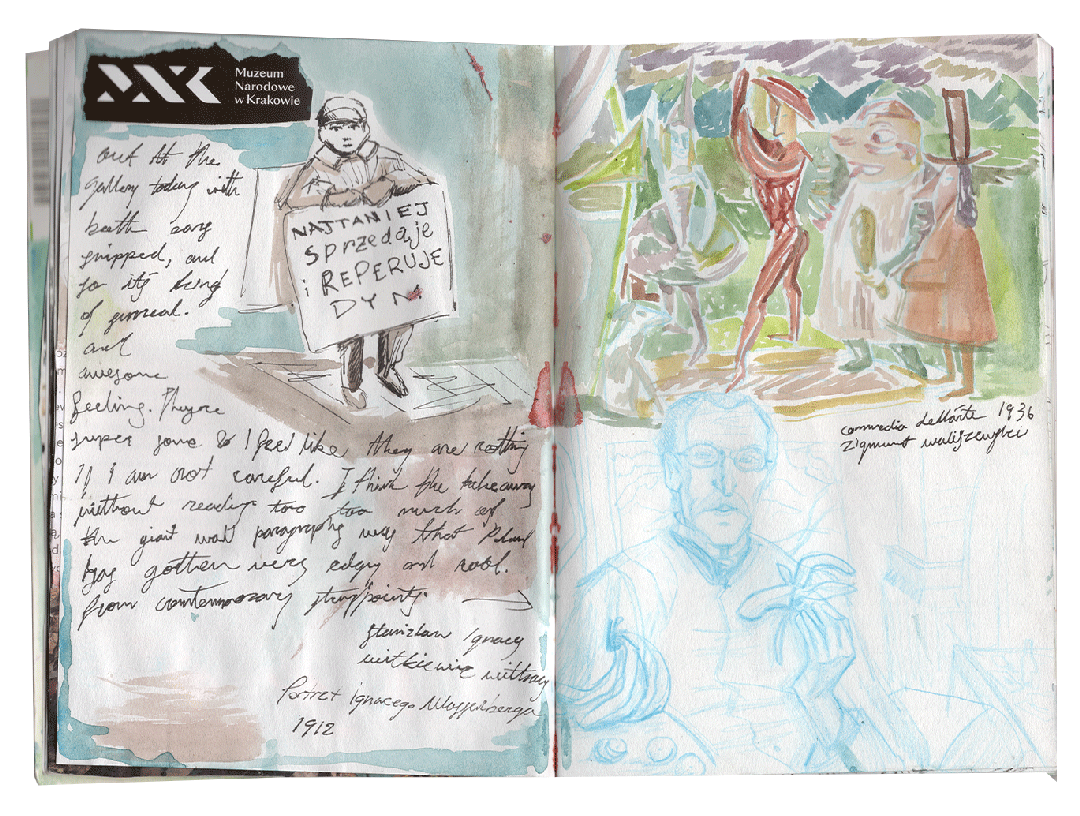 Muzeum
Narodowe
w Krakowie
out at the
gallery today with
both
and
so its being
of surreal.
and
awesome
feeling. They're
super some & I feel like they are nothing
if I am not careful. I think the takeaway
without reading too too much of
the giant wall paragraphs was that Poland
has gotten very edgy and cool.
from contemporary
NAJTANIEJ
Sprzedaje
i REPERUJE
DYN
Stanislaw Ignacy
witkiewicz witkacy
Portret Ignacego
1912
commedia dellarte 1936
Zigmunt waliszewski